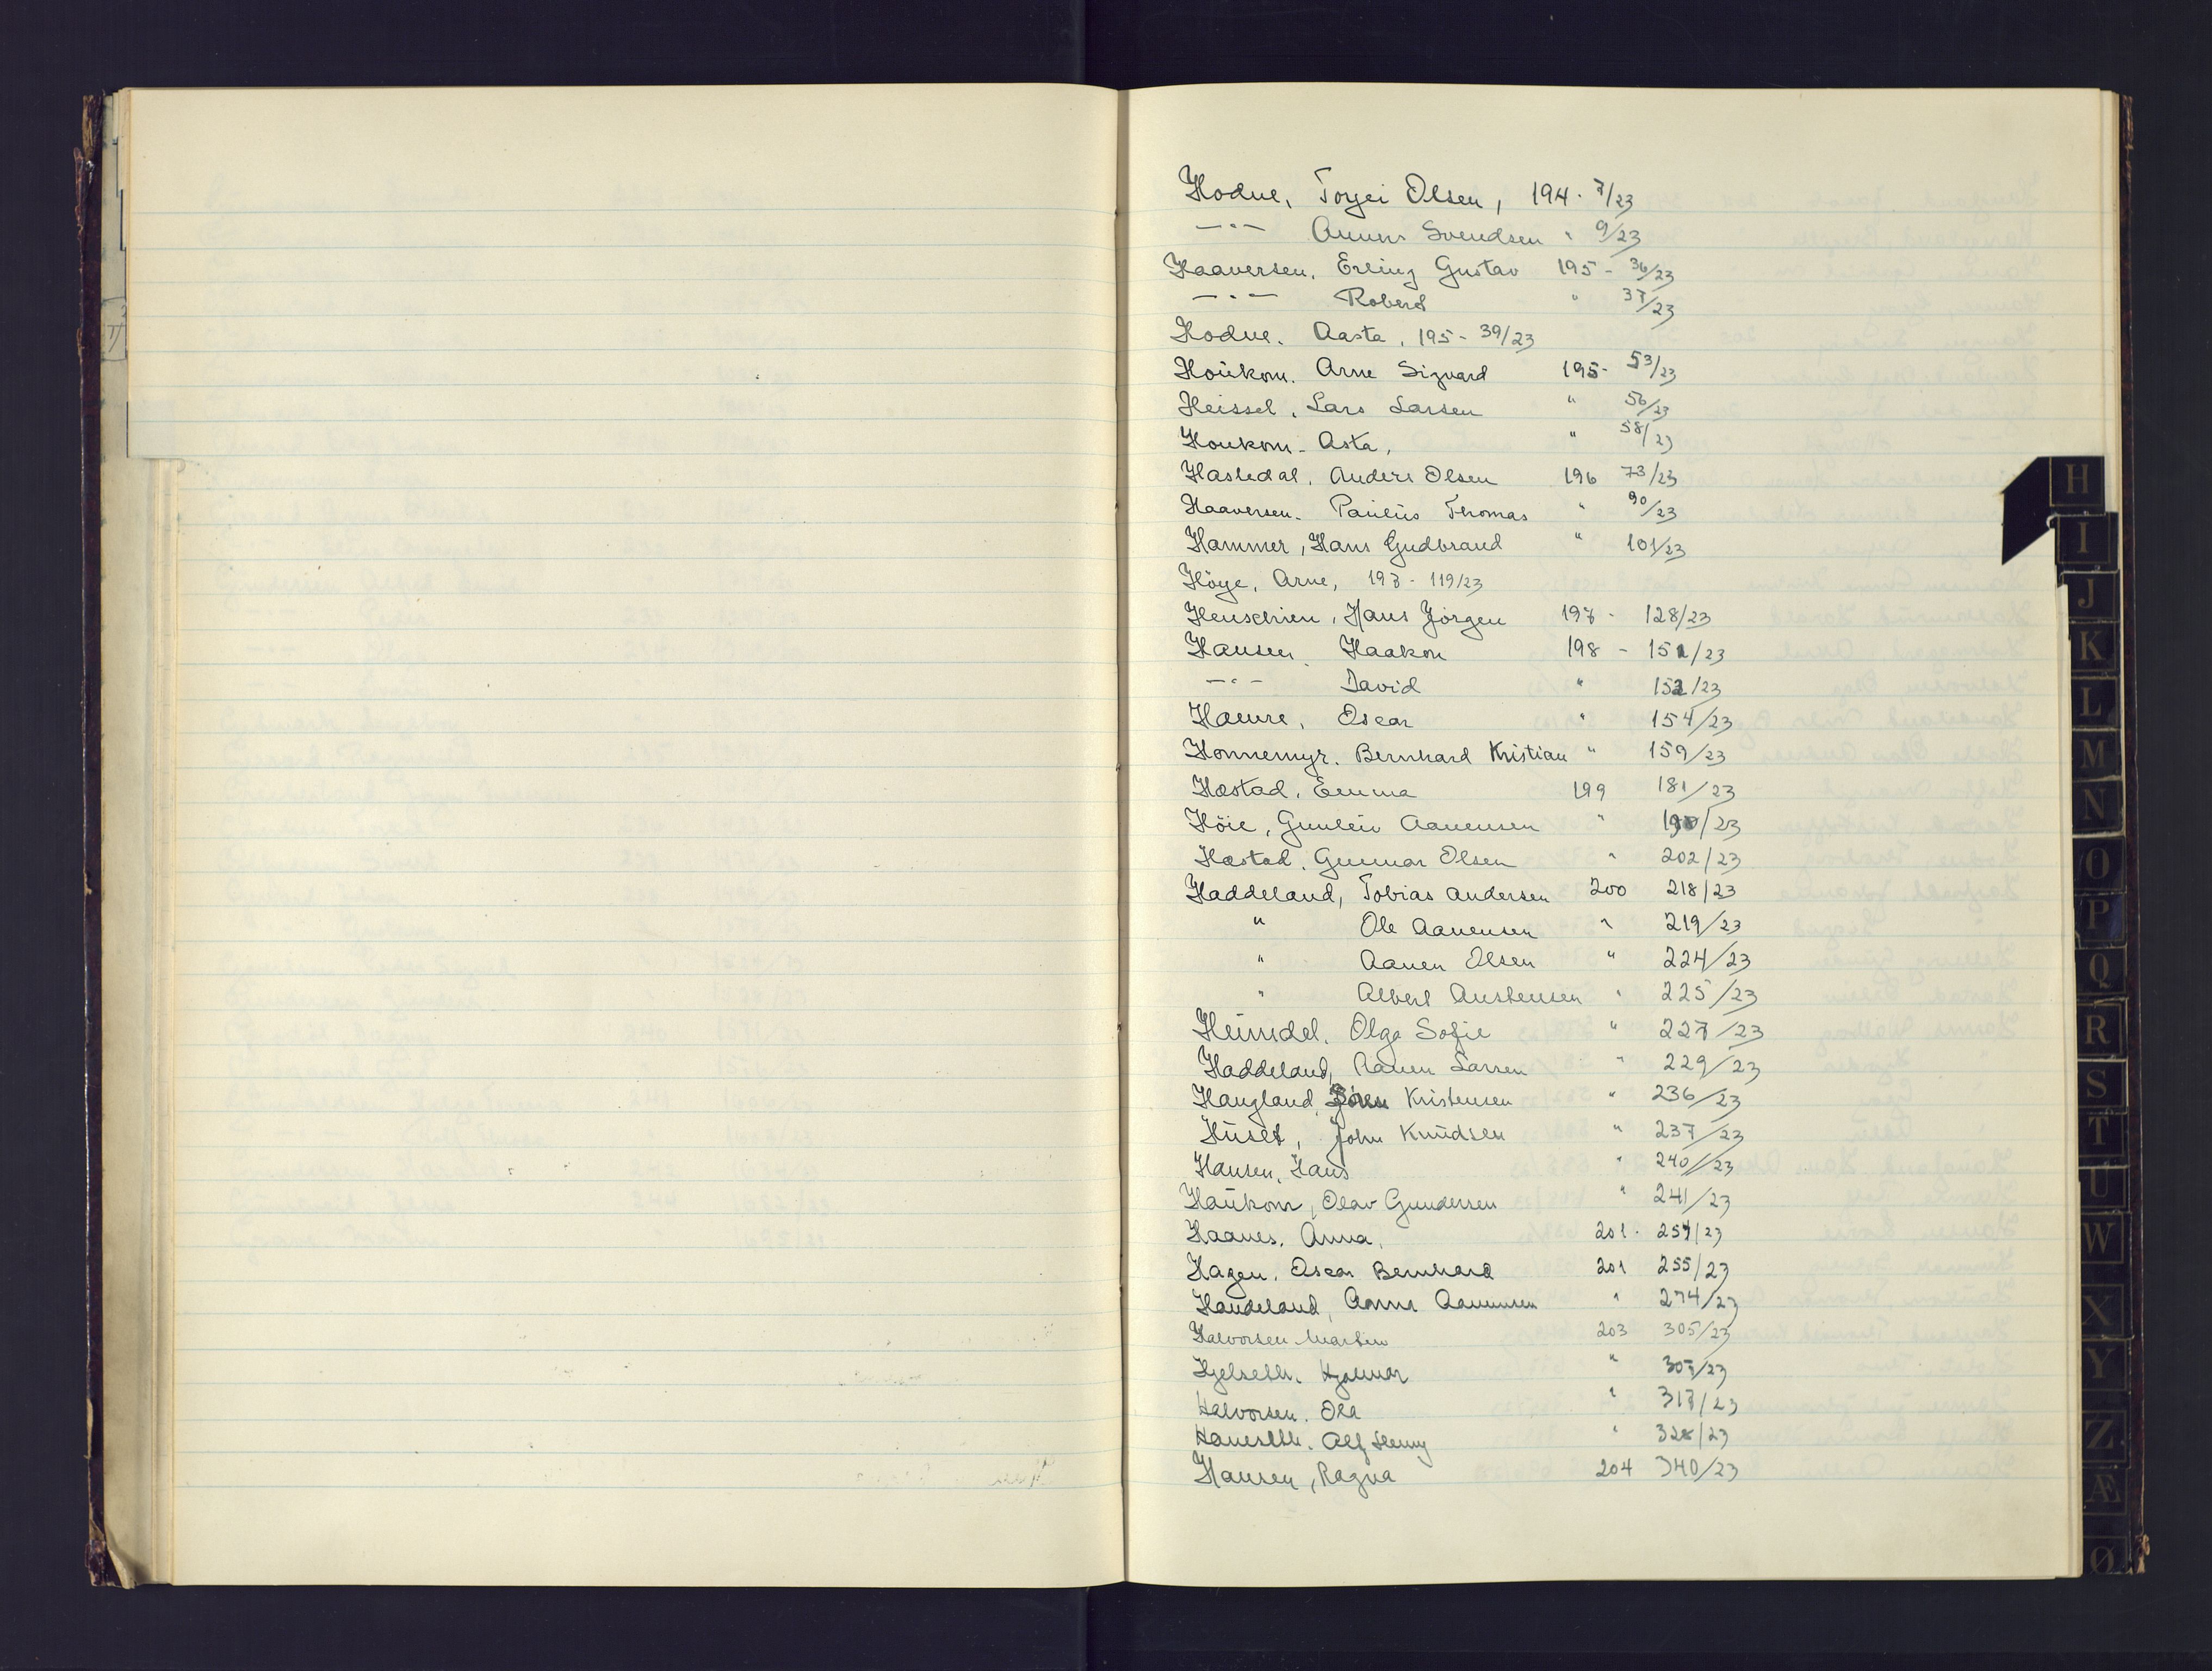 Hodne, Torjei Olsen, 194 - 7/23
—"— Anders Svendsen " 9/23
Haaversen, Erling Gustav 195 - 36/23
—"— Robert " 37/23
Hodne. Aasta, 195 - 39/23
Houkom. Arne Sigvard 195 - 53/23
Heissel, Lars Larsen " 56/23
Houkom. Asta, " 58/23
Hasledal, Anders Olsen 196 73/23
Haaversen. Paulus Thomas " 90/23
Hammer, Hans Gudbrand " 101/23
Höye, Arne, 197 - 119/23
Henschien, Hans Jörgen 197 - 128/23
Hansen, Haakon 198 - 151/23
—"— David " 152/23
Hamre, Oscar " 154/23
Honnemyr. Bernhard Kristian " 159/23
Hæstad, Emma 199 181/23
Höie, Gunleiv Aanensen " 190/23
Hæstad, Gunnar Olsen " 202/23
Haddeland, Tobias Andersen 200 218/23
" Ole Aanensen " 219/23
" Aanen Olsen " 224/23
" Albert Austensen " 225/23
Heimdel. Olga Sofie " 227/23
Haddeland, Aanen Larsen " 229/23
Haugland, Sören Kristensen " 236/23
Huset, John Knudsen " 237/23
Hansen, Hans " 240/23
Haukom, Olav Gundersen " 241/23
Haanes, Anna, 201 - 254/23
Hagen, Oscar Bernhard 201 255/23
Haudeland, Aanen Aanensen " 274/23
Halvorsen Martin 203 305/23
Hjelseth. Hjalmar " 307/23
Halvorsen. Ola " 317/23
Haneseth. Alf Henry " 328/23
Hansen, Ragna 204 340/23
H
I
J
K
L
M
N
O
P
Q
R
S
T
U
W
X
Y
Z
Æ
Ø